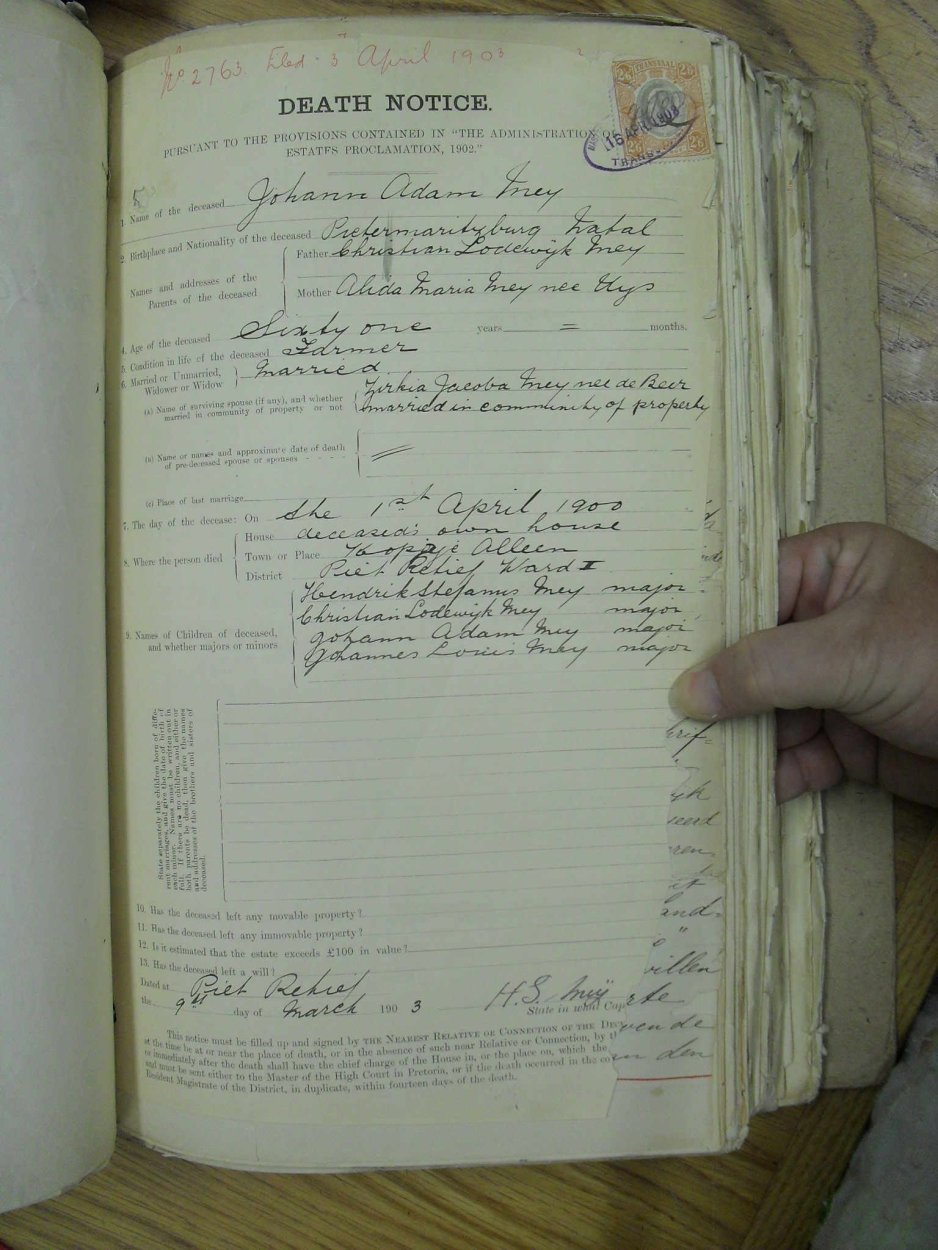 No 2763. Filed 3 April 1903
TRANSVAAL
2/6 2/6
16 APR 1903
TRANSVAAL
DEATH NOTICE.
PURSUANT TO THE PROVISIONS CONTAINED IN "THE ADMINISTRATION OF
ESTATES PROCLAMATION, 1902."
1. Name of the deceased Johann Adam Mey
2. Birthplace and Nationality of the deceased Pietermaritzburg Natal
Names and addresses of the Parents of the deceased
Father Christian Lodewijk Mey
Mother Alida Maria Mey nee Uys
4. Age of the deceased Sixty one years = months.
5. Condition in life of the deceased Farmer
6. Married or Unmarried, Widower or Widow Married
(a) Name of surviving spouse (if any), and whether married in community of property or not
Zirkia Jacoba Mey nee de Beer
married in community of property
(b) Name or names and approximate date of death of pre-deceased spouse or spouses - - - - =
(c) Place of last marriage
7. The day of the decease: On the 1st April 1900
8. Where the person died
House deceased's own house
Town or Place Kopje Alleen
District Piet Retief Ward I
9. Names of Children of deceased, and whether majors or minors
Hendrik Stefanus Mey major
Christian Lodewijk Mey major
Johann Adam Mey major
Johannes Louis Mey major
State separately the children born of diffe-
rent marriages, and give the date of birth of
each minor. Names must be written out in
full. If there are no children, and either or
both parents be dead, then give the names
and addresses of the brothers and sisters of
deceased.
10. Has the deceased left any movable property?
11. Has the deceased left any immovable property?
12. Is it estimated that the estate exceeds £100 in value?
13. Has the deceased left a will?
Dated at Piet Retief
the 9th day of March 1903
H.S. Mey
State in what Cap
This notice must be filled up and signed by THE NEAREST RELATIVE OR CONNECTION OF THE DEC
at the time be at or near the place of death, or in the absence of such near Relative or Connection, by th
or immediately after the death shall have the chief charge of the House in, or the place on, which the
and must be sent either to the Master of the High Court in Pretoria, or if the death occurred in the co
Resident Magistrate of the District, in duplicate, within fourteen days of the death.